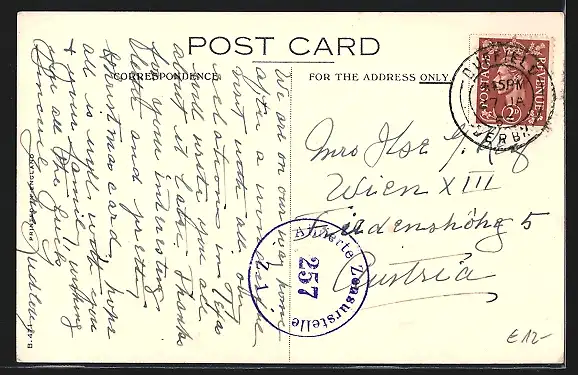 POST CARD
CORRESPONDENCE
FOR THE ADDRESS ONLY
We are on our way home
after a wonderful
visit with all our
relations in
will write you all
about it later. Thanks
for your interesting
letter and pretty
Christmas card, hope
all is well with you
& your family, wishing
you all the luck
Sincerely
Mrs Ilse
Wien XIII
Friedenshöhg 5
Austria
POSTAGE REVENUE
2D
DUFFIELD
45PM
7 JA
DERBY
Alliierte Zensurstelle
257
PRINTED IN ENGLAND
B.A.
£12-